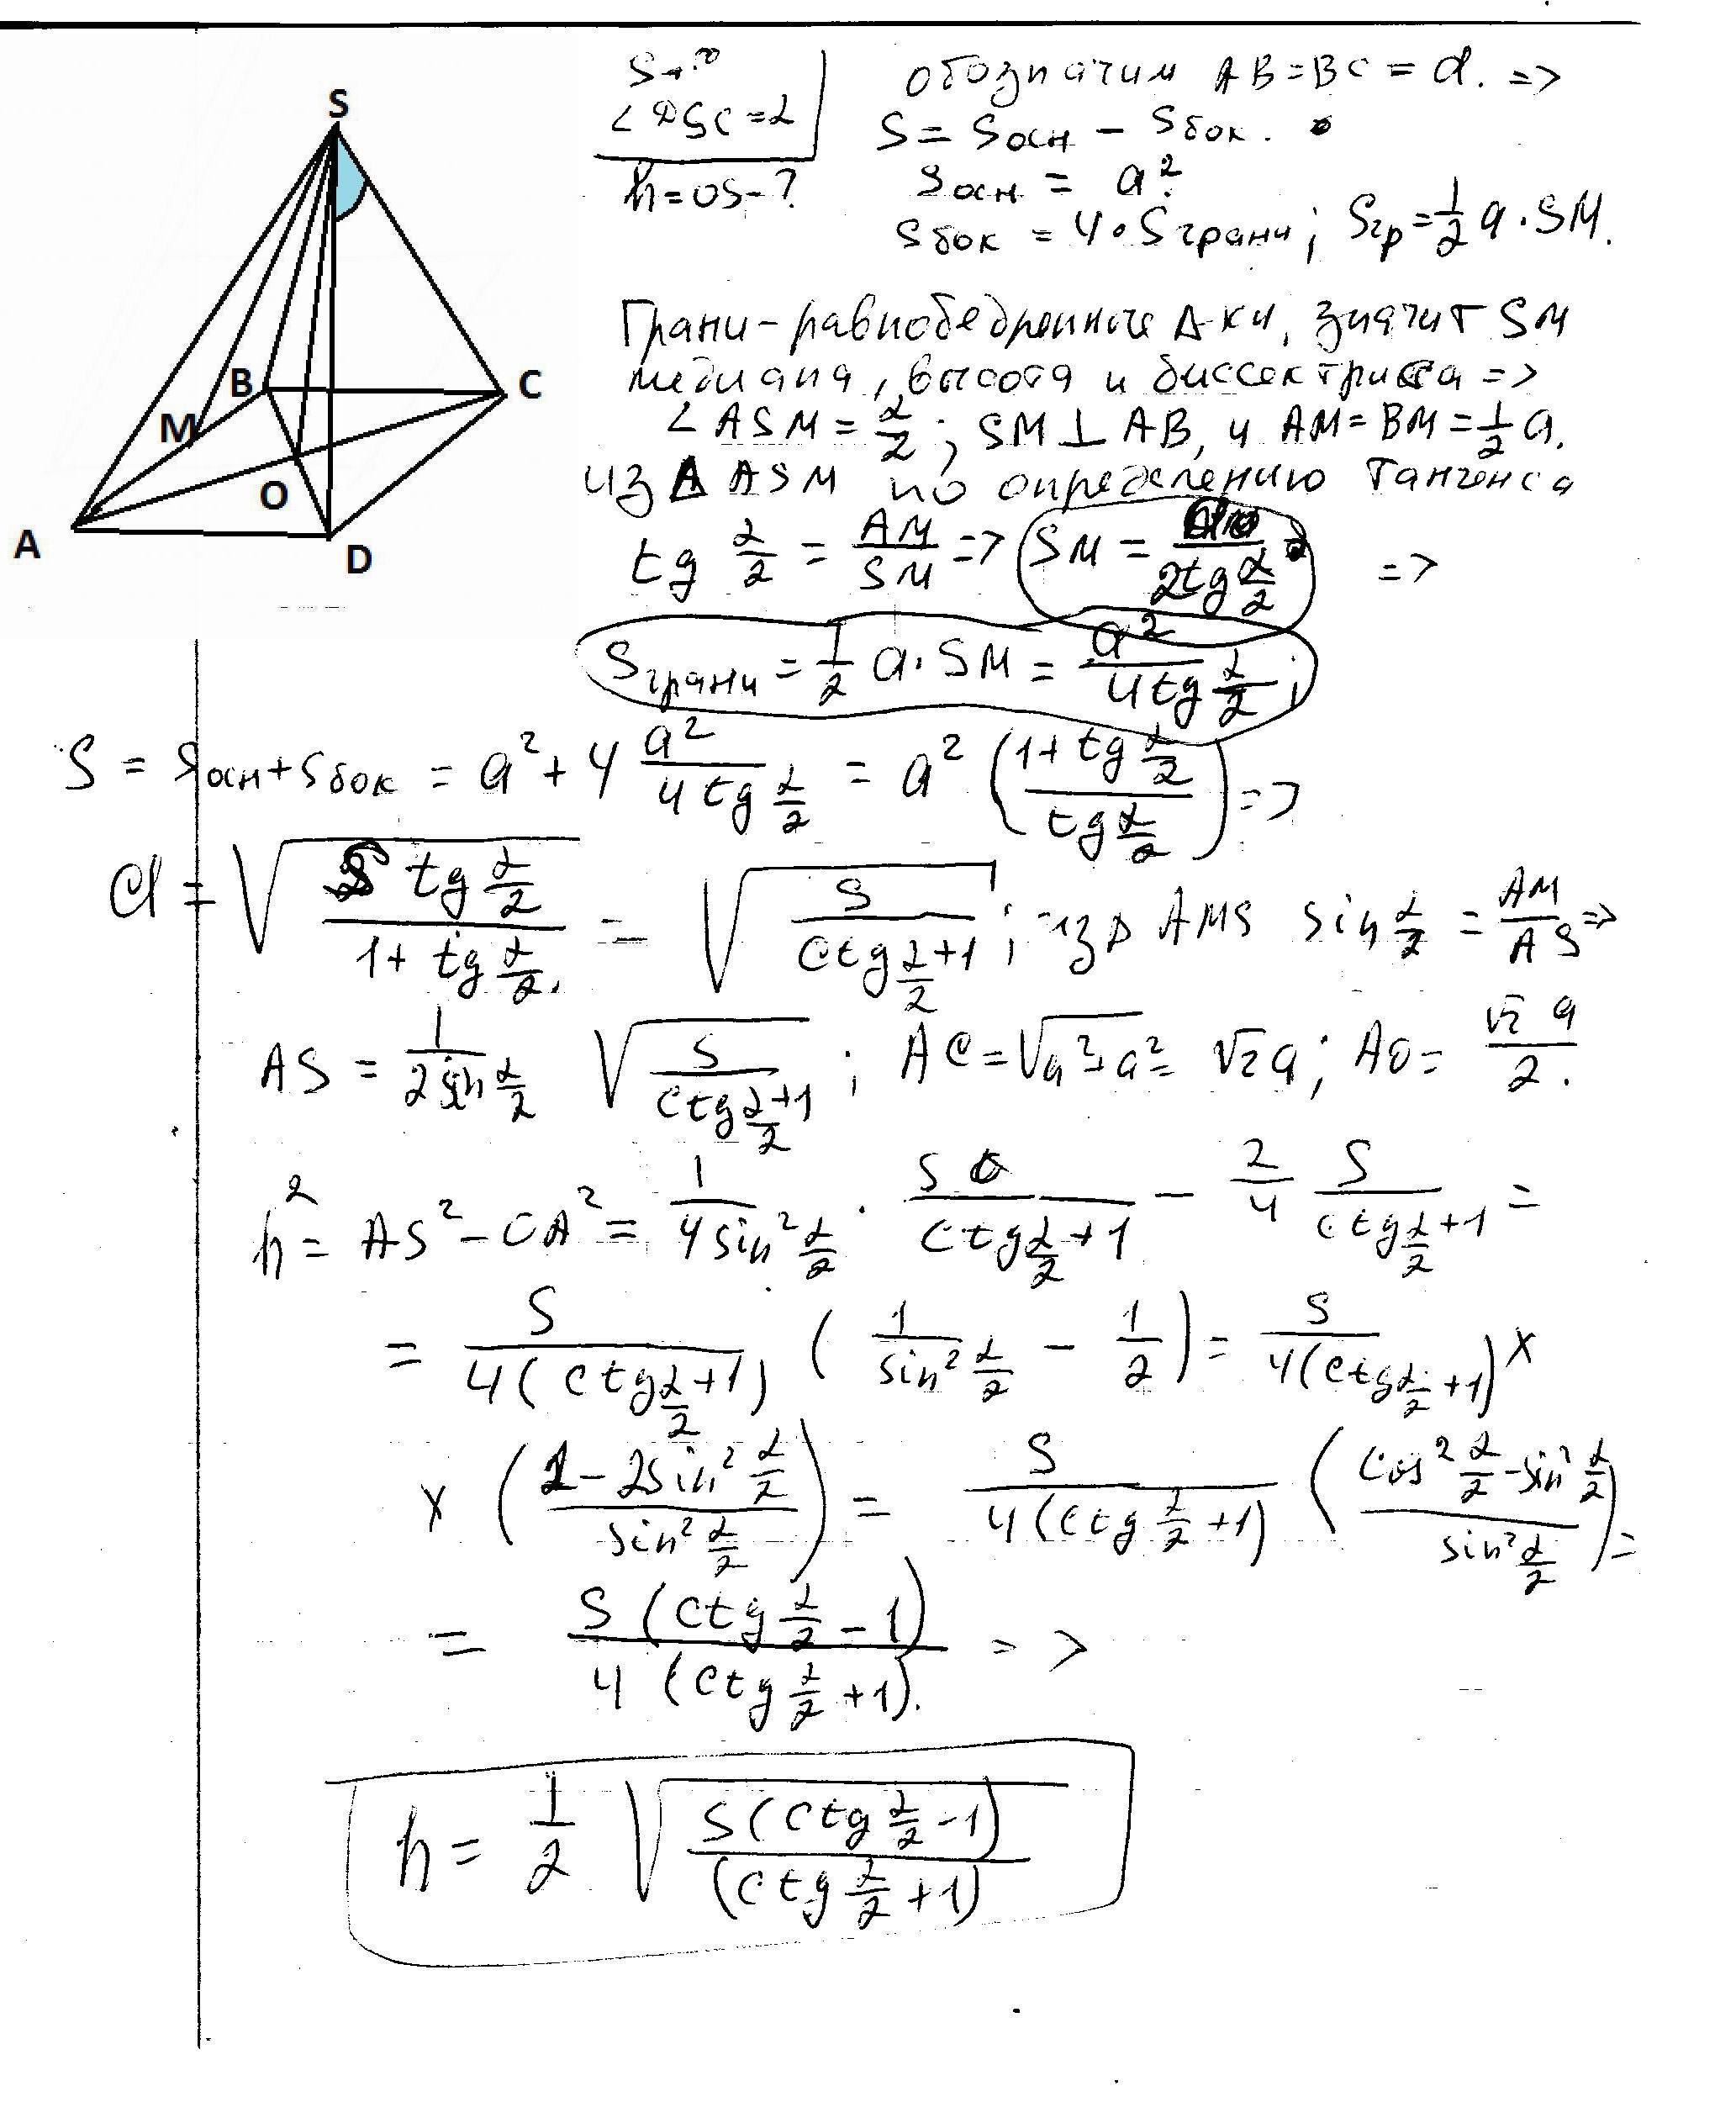 S
B
C
M
O
A
D
S - ?
∠DSC = α
h = OS - ?
обозначим AB = BC = a. =>
S = Sосн - Sбок.
Sосн = a².
Sбок = 4 · Sграни; Sгр = 1/2 a · SM.
Грани - равнобедренные Δ-ки, значит SM
медиана, высота и биссектрисса =>
∠ASM = α/2; SM ⊥ AB, и AM = BM = 1/2 a.
из Δ ASM по определению тангенса
tg α/2 = AM/SM => SM = a/(2tg α/2) =>
Sграни = 1/2 a · SM = a²/(4tg α/2);
S = Sосн + Sбок = a² + 4 a²/(4tg α/2) = a² ((1 + tg α/2)/(tg α/2)) =>
a = √(S tg α/2 / (1 + tg α/2)) = √(S/(ctg α/2 + 1)); из Δ AMS sin α/2 = AM/AS =>
AS = 1/(2sin α/2) √(S/(ctg α/2 + 1)); AC = √(a² + a²) = √2 a; AO = √2 a/2.
h² = AS² - OA² = 1/(4sin² α/2) · S/(ctg α/2 + 1) - 2/4 S/(ctg α/2 + 1) =
= S/(4(ctg α/2 + 1)) (1/(sin² α/2) - 1/2) = S/(4(ctg α/2 + 1)) ×
× ((1 - 2sin² α/2)/(sin² α/2)) = S/(4(ctg α/2 + 1)) ((cos² α/2 - sin² α/2)/(sin² α/2)) =
= S(ctg α/2 - 1)/(4(ctg α/2 + 1)). =>
h = 1/2 √(S(ctg α/2 - 1)/(ctg α/2 + 1))